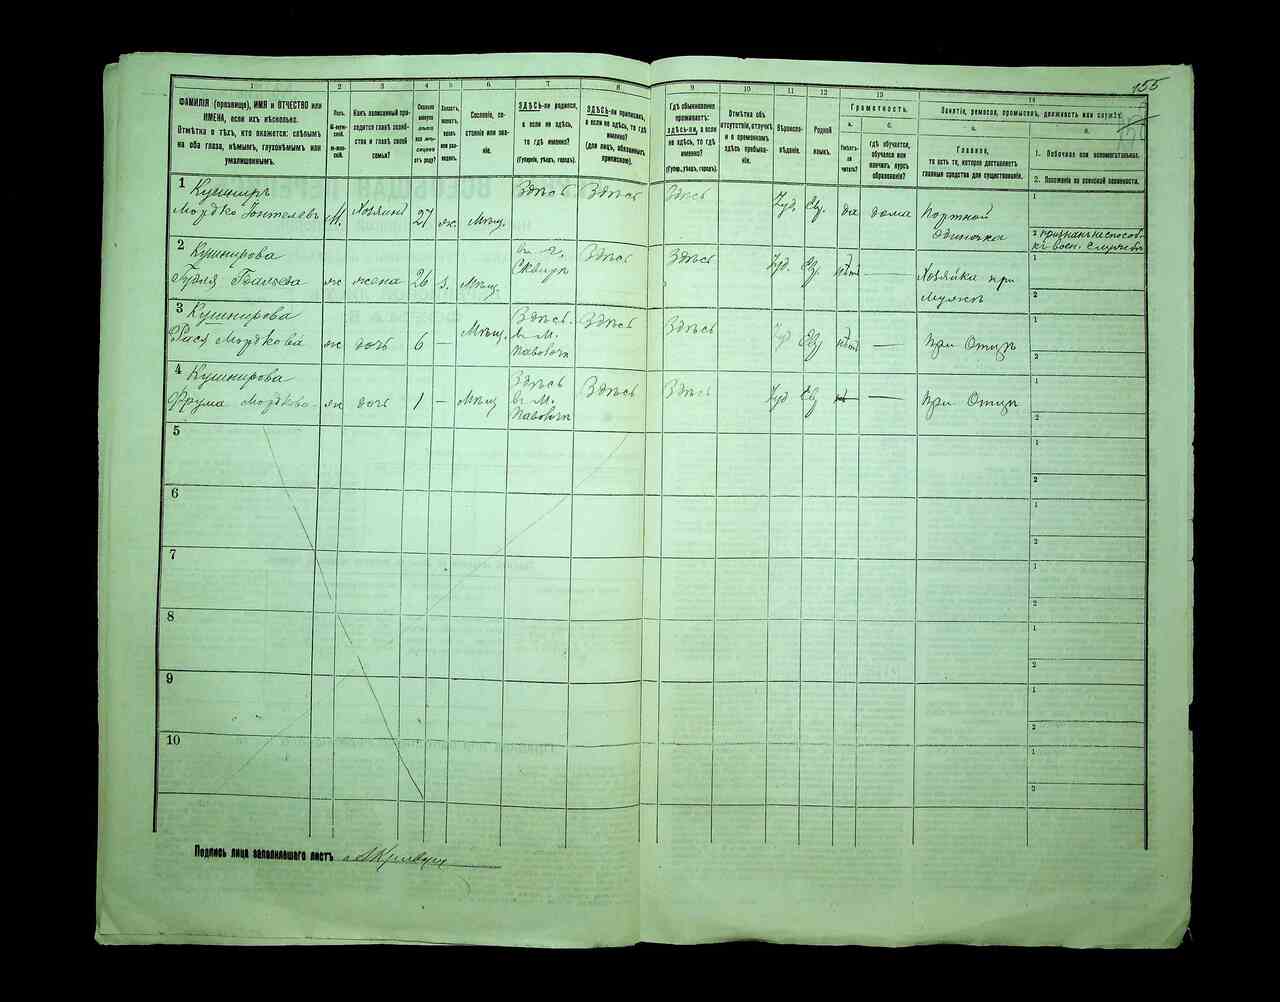 155
1 2 3 4 5 6 7 8 9 10 11 12 13 14
ФАМИЛІЯ (прозвище), ИМЯ и ОТЧЕСТВО или
ИМЕНА, если ихъ нѣсколько.
Отмѣтка о тѣхъ, кто окажется: слѣпымъ
на оба глаза, нѣмымъ, глухонѣмымъ или
умалишоннымъ.
Полъ.
М-мужской.
Ж-женскій.
Какъ записанный приходится главѣ хозяйства и главѣ своей
семьи?
Сколько
минуло
лѣтъ
или мѣсяцевъ
отъ роду?
Холостъ,
женатъ,
вдовъ
или разведенъ.
Сословіе, состояніе или званіе.
ЗДѢСЬ-ли родился,
а если не здѣсь,
то гдѣ именно?
(Губернія, уѣздъ, городъ).
ЗДѢСЬ-ли приписанъ,
а если не здѣсь, то гдѣ
именно?
(для лицъ, обязанныхъ
припискою).
Гдѣ обыкновенно
проживаетъ:
здѣсь-ли, а если
не здѣсь, то гдѣ
именно?
(Губерн., уѣздъ, городъ).
Отмѣтка объ
отсутствіи, отлучкѣ
и о временномъ
здѣсь пребываніи.
Вѣроисповѣданіе.
Родной
языкъ.
Грамотность.
а.
Умѣетъ-ли
читать?
б.
Гдѣ обучается,
обучался или
кончилъ курсъ
образованія?
Занятіе, ремесло, промыселъ, должность или служба.
а.
Главное,
то есть то, которое доставляетъ
главныя средства для существованія.
б.
1. Побочное или вспомогательное.
2. Положеніе по воинской повинности.
1 Кушниръ
Мордко М. Хозяинъ 27 ж. Мѣщ. Здѣсь Здѣсь Здѣсь Іуд. Ев. да дома Портной
одиночка
1
2 признанъ неспособ.
къ воен. службѣ
2 Кушнирова
жс жена 26 з. Мѣщ. въ г.
Сквирѣ Здѣсь Здѣсь Іуд. Ев. нѣтъ — Хозяйка при
мужѣ
1
2
3 Кушнирова
Рися Мордкова жс дочь 6 — Мѣщ. Здѣсь
въ М.
Паволочи Здѣсь Здѣсь Іуд Ев нѣтъ — при Отцѣ
1
2
4 Кушнирова
Фрума Мордкова жс дочь 1 — Мѣщ Здѣсь
въ М.
Паволочи Здѣсь Здѣсь Іуд Ев — при Отцѣ
1
2
5
1
2
6
1
2
7
1
2
8
1
2
9
1
2
10
1
2
Подпись лица заполнявшаго листъ